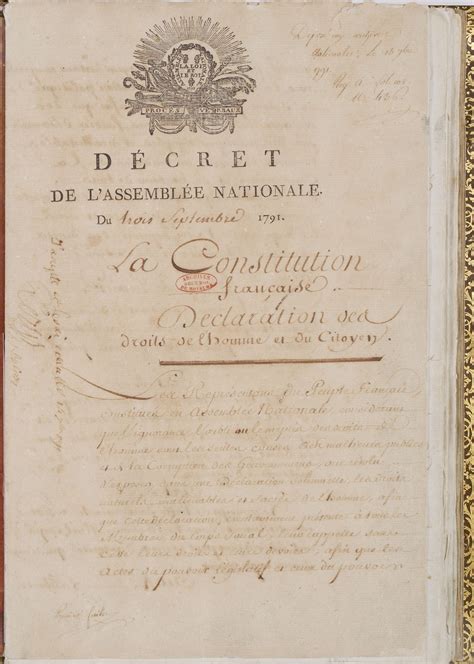 LA LOI
ET
LE ROI
PROCÈS VERBAUX
nationales, le
1791.
DÉCRET
DE L'ASSEMBLÉE NATIONALE.
Du trois Septembre 1791.
La Constitution
française.
ARCHIVES
DU ROYAUME
Déclaration des
droits de l'homme et du Citoyen,
Les Représentans du Peuple Français,
constitués en Assemblée Nationale, considérant
que l'ignorance, l'oubli ou le mépris des droits de
l'homme sont les seules causes des malheurs publics
et de la Corruption des Gouvernemens, ont résolu
d'exposer dans une Déclaration solemnelle, les droits
naturels, inaliénables et sacrés de l'homme, afin
que cette déclaration, constamment présente à tous les
Membres du Corps Social, leur rappelle sans
cesse leurs droits et leurs devoirs; afin que les
actes du pouvoir législatif et ceux du pouvoir